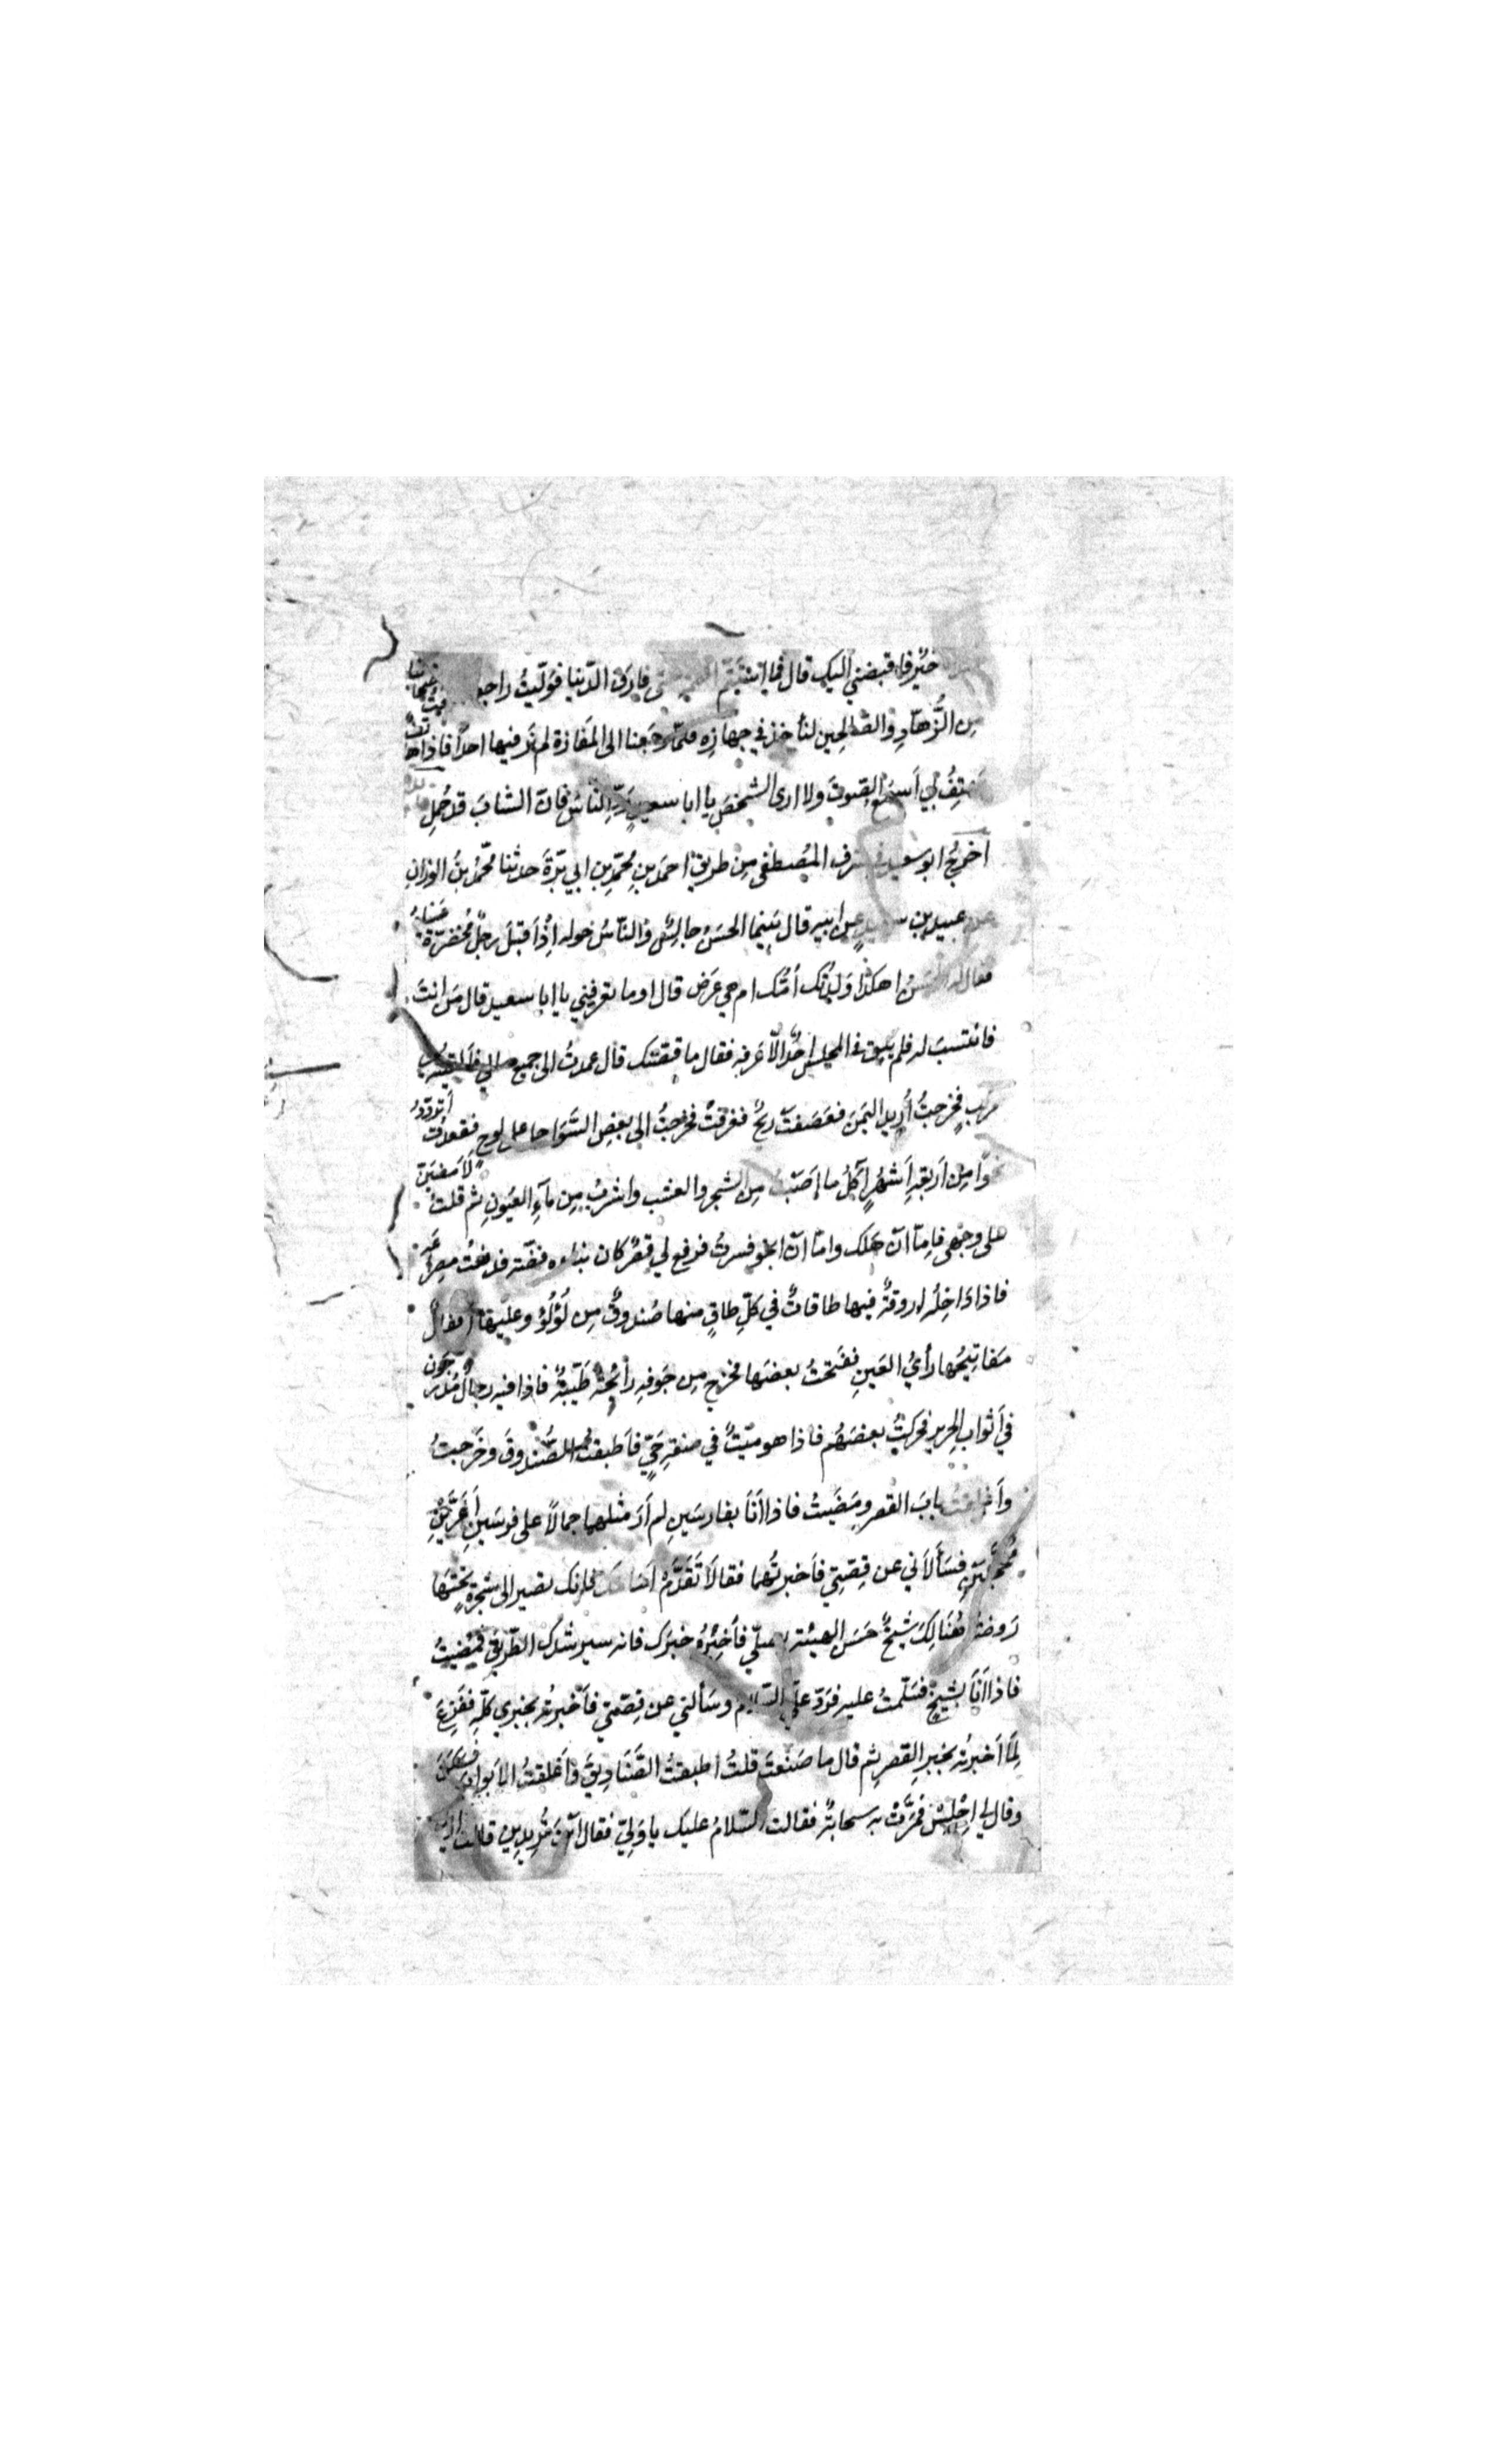 خيْرٍ فاقبضني اليك قال فما استتمّ فارق الدّنيا فولّيتُ
مِن الزُّهّادِ والصّالحين لنأخذ في جهازِه فلمّا رجعنا الى المفازة لم نَر فيها احدًا فاذا
يَهتِفُ بي اَسمعُ الصَّوتَ ولا ارى الشخصَ يا ابا سعيدٍ رُدِّ النّاسَ فانّ الشابَ قد حُمِلَ
اخرج ابو سعيد في شرف المُصطفى مِن طريقِ احمَد بنِ محمّدِ بنِ ابي بَزّةَ حدثنا محمّدُ بنُ الوزانِ
عن عبيدِ بنِ عن ابيه قال بَينما الحسَنُ جالِسٌ والنّاسُ حَوله اِذْ اَقبَلَ رجلٌ مُخضرّة عَيناهُ
فقال له الحسَنُ اهكذا وَلَدتْك اُمُّك ام هي عَرَض قال اوما تعرِفني يا ابا سعيد قال مَن انتَ
فانتسبَ له فلم يبق في المجلس احُدٌ الّا عَرفه فقال ما قصّتك قال عمدتُ الى جميع مالي فاَلقيته في
مركبٍ فخرجتُ اُريد اليَمَنَ فعَصَفتْ ريحٌ فغرقتُ فخرجتُ الى بعضِ السَّوَاحل على لوحٍ فقعدتُ اَتردّدُ
نحوًا مِن اَربعةِ اَشهُرٍ آكُلُ ما اَصَبتُ مِن الشجر والعشب واشربُ مِن مَآءِ العُيونِ ثم قلت لَاَمضيَنّ
على وجهى فامّا اَن اَهلك وامّا ان انجو فسرتُ فرفع لي قصرٌ كان بناءه فضّة فدفعتُ مِصراعه
فاذا دَاخِلُه اروقةٌ فيها طاقاتٌ في كلّ طاقٍ منها صُندوقٌ مِن لُؤلُؤ وعليها اَقفالٌ
مَفاتيحُها رأيُ العَينِ ففتحتُ بعضَها فخرج مِن جَوفِه رائحةٌ طَيّبةٌ فاذا فيه رجالٌ مُدرَجون
في اَثواب الحرير فحرّكتُ بعضَهُم فاذا هو ميّتٌ في صفةِ حَيٍّ فاَطبقتُ الصُّندوقَ وخرَجتُ
واَغلقتُ بابَ القصر ومضَيتُ فاذا اَنَا بفارسَينِ لم اَرَ مثلهما جمالًا على فرسَينِ اَغَرَّينِ
مُحجّلَينِ فسَاَلاَني عن قِصّتي فاَخبرتُهما فقالَا تَقدَّمْ اَمَامَك فاِنك تصير الى شجرةٍ تحتَها
رَوضةٌ هُنَالِكَ شيخٌ حَسَن الهيئة يصلّي فاَخبِرْهُ خبرَك فانه سيرشدُك الطّريق فمضيتُ
فاذا اَنَا بشيخٍ فسَلّمتُ عليه فرَدّ علَيَّ السّلام وسَألني عن قِصّتي فاَخبرتُه بخبري كلّه ففَزِعَ
لِمّا اَخبرتُه بخبرِ القصرِ ثم قال ما صَنَعتَ قلتُ اطبقتُ الصّنَاديقَ واَغلقتُ الاَبوابَ فسَكَنَ
وقال لي اجْلِسْ فمرَّتْ به سحابةٌ فقالت السّلامُ عليك يا وَلِيّ فقال اَينَ تُريدِينَ قالت